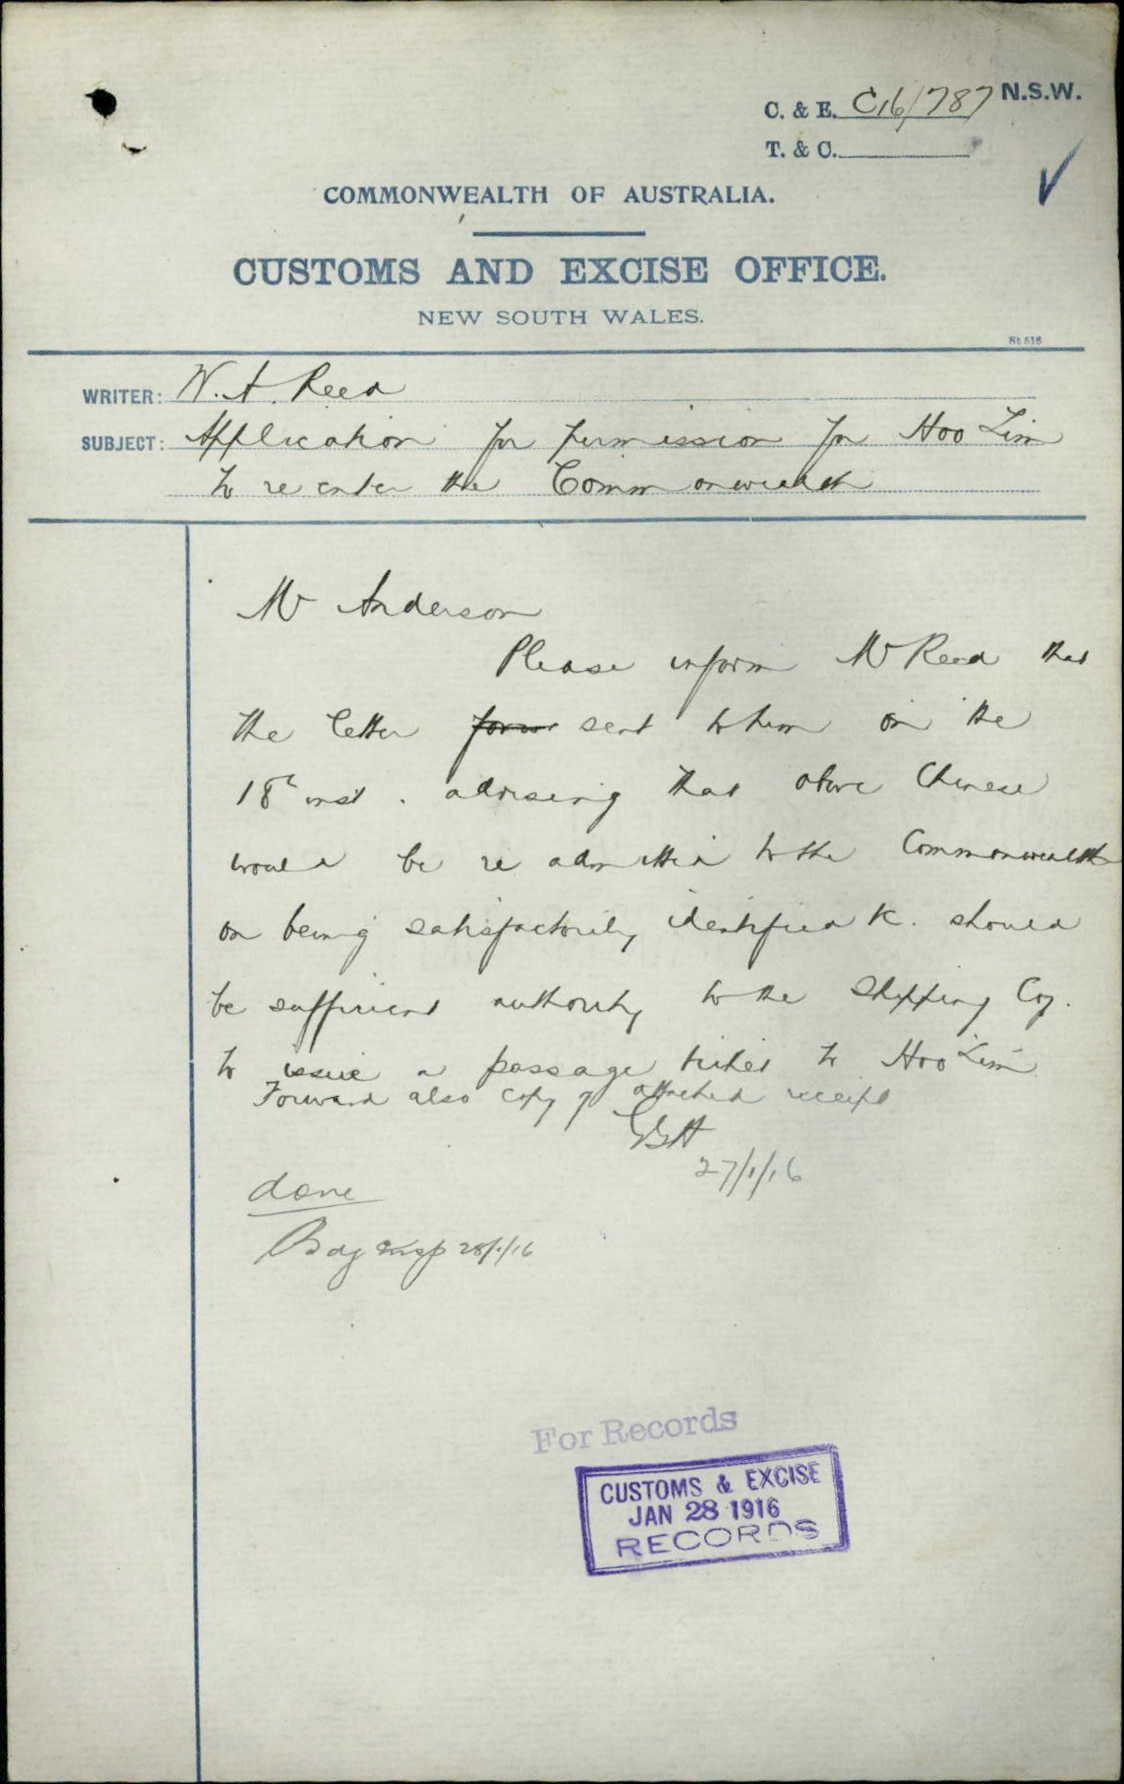 C. & E. C16/787 N.S.W.
T. & C.
COMMONWEALTH OF AUSTRALIA.
CUSTOMS AND EXCISE OFFICE.
NEW SOUTH WALES.
WRITER: W. A. Reed
SUBJECT: Application for permission for Hoo Lim
to re enter the Commonwealth
Mr Anderson
Please inform Mr Reed that
the letter form sent to him on the
18th inst. advising that above Chinese
would be re admitted to the Commonwealth
on being satisfactorily identified &c. should
be sufficient authority to the Shipping Coy.
to issue a passage ticket to Hoo Lim
Forward also copy of attached receipt
27/1/16
done
28/1/16
For Records
CUSTOMS & EXCISE
JAN 28 1916
RECORDS